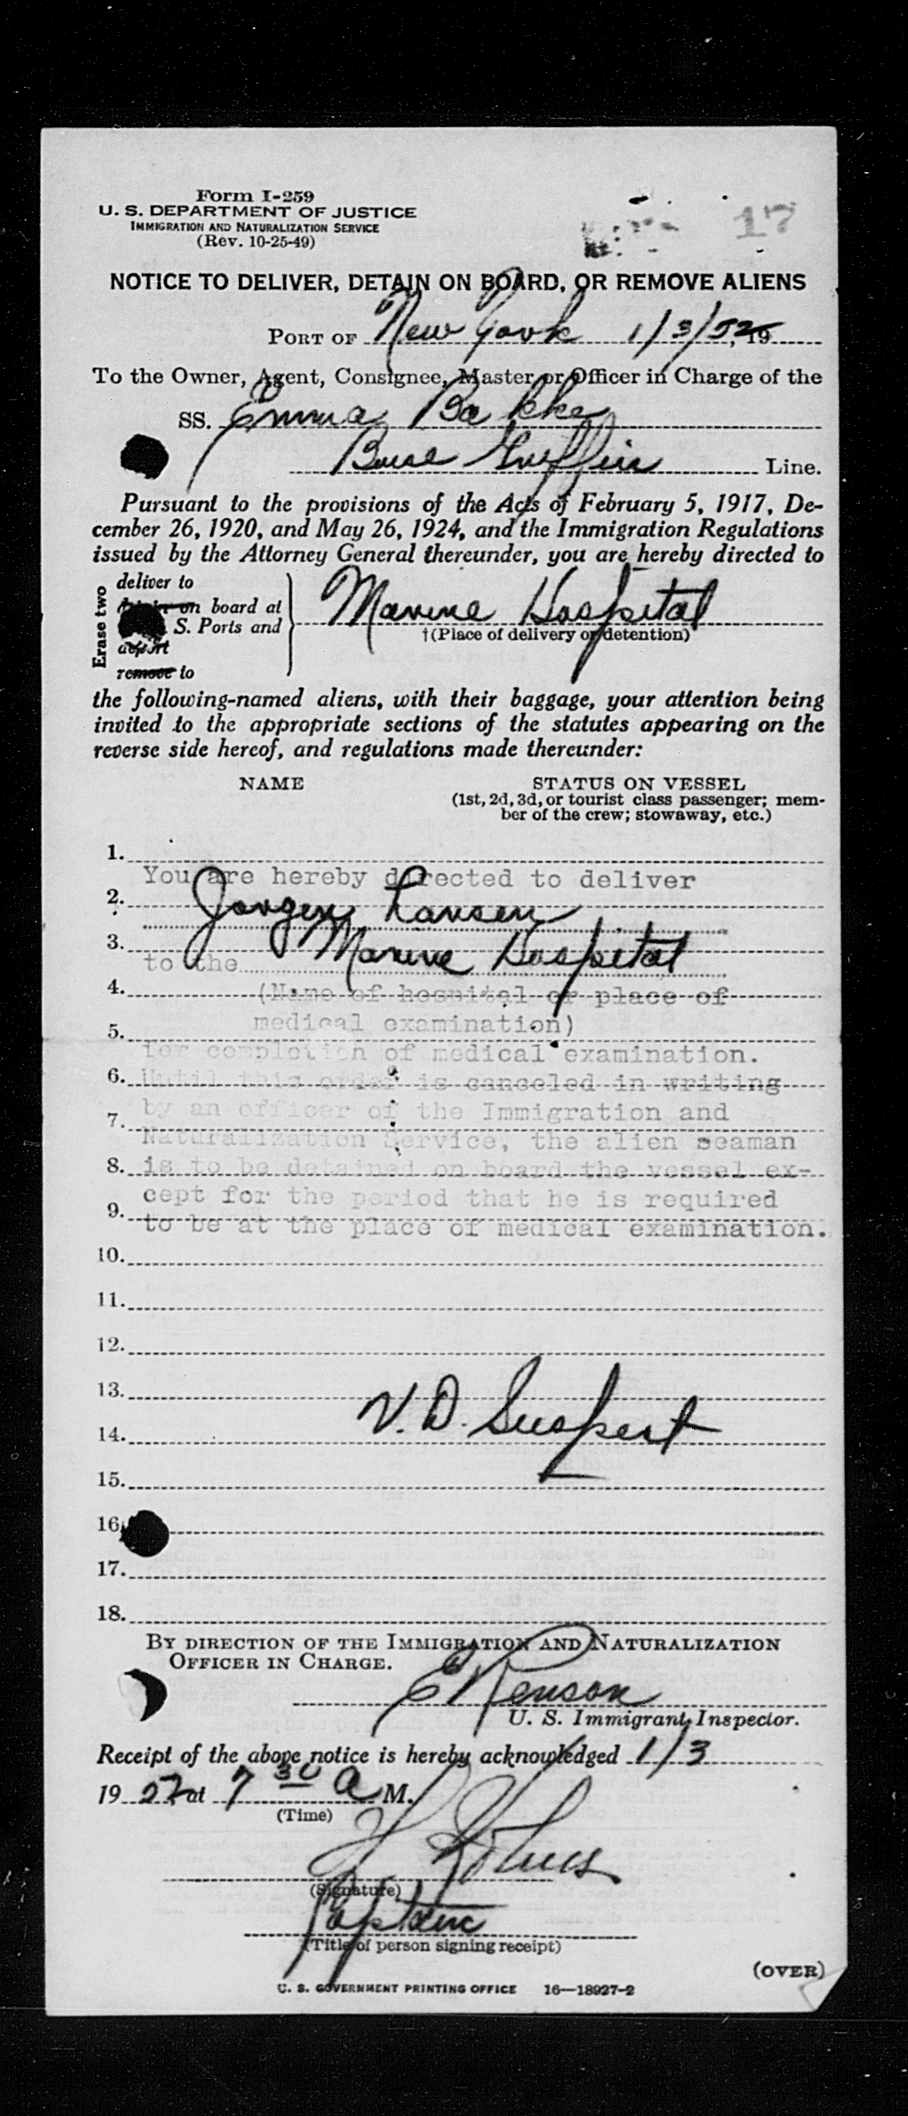 Form I-259
U. S. DEPARTMENT OF JUSTICE
IMMIGRATION AND NATURALIZATION SERVICE
(Rev. 10-25-49)
17
NOTICE TO DELIVER, DETAIN ON BOARD, OR REMOVE ALIENS
PORT OF New York 1/3/52, 19
To the Owner, Agent, Consignee, Master or Officer in Charge of the
SS. Emma Bakke
Griffin Line.
Pursuant to the provisions of the Acts of February 5, 1917, De-
cember 26, 1920, and May 26, 1924, and the Immigration Regulations
issued by the Attorney General thereunder, you are hereby directed to
Erase two
deliver to
on board at
S. Ports and
deport
remove to
Marine Hospital
†(Place of delivery or detention)
the following-named aliens, with their baggage, your attention being
invited to the appropriate sections of the statutes appearing on the
reverse side hereof, and regulations made thereunder:
NAME STATUS ON VESSEL
(1st, 2d, 3d, or tourist class passenger; mem-
ber of the crew; stowaway, etc.)
1.
You are hereby directed to deliver
2. Jorgen Larsen
3.
to the Marine Hospital
4. (Name of hospital or place of
medical examination)
5.
for completion of medical examination.
6. Until this order is canceled in writing
by an officer of the Immigration and
7.
Naturalization Service, the alien seaman
8. is to be detained on board the vessel ex-
cept for the period that he is required
9. to be at the place of medical examination.
10.
11.
12.
13.
14. V. D. Suspect
15.
16.
17.
18.
BY DIRECTION OF THE IMMIGRATION AND NATURALIZATION
OFFICER IN CHARGE.
E Renson
U. S. Immigrant Inspector.
Receipt of the above notice is hereby acknowledged 1/3
19 52 at 7 30 A M.
(Time)
(Signature)
Captain
(Title of person signing receipt)
(OVER)
U. S. GOVERNMENT PRINTING OFFICE 16—18927-2